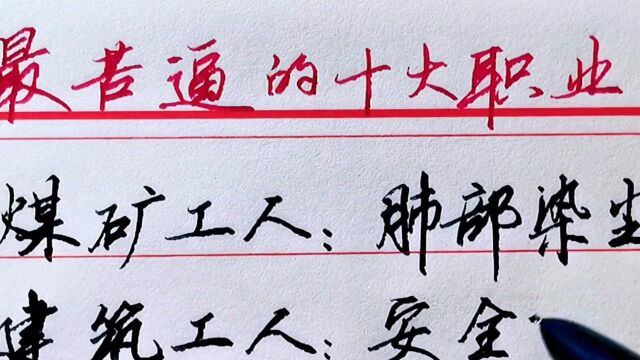 最苦逼的十大职业
煤矿工人：肺部染尘
建筑工人：安全